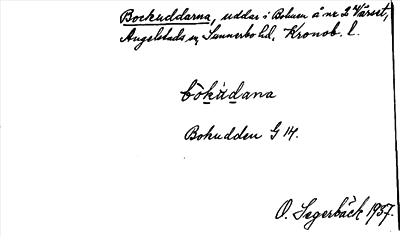 Bockuddarna, uddar i Bolmen å nr 2 Värset,
Angelstads sn, Sunnerbo hd, Kronob. l.
bòkùdana
Bokudden G 14.
O. Segerbäck 1937.